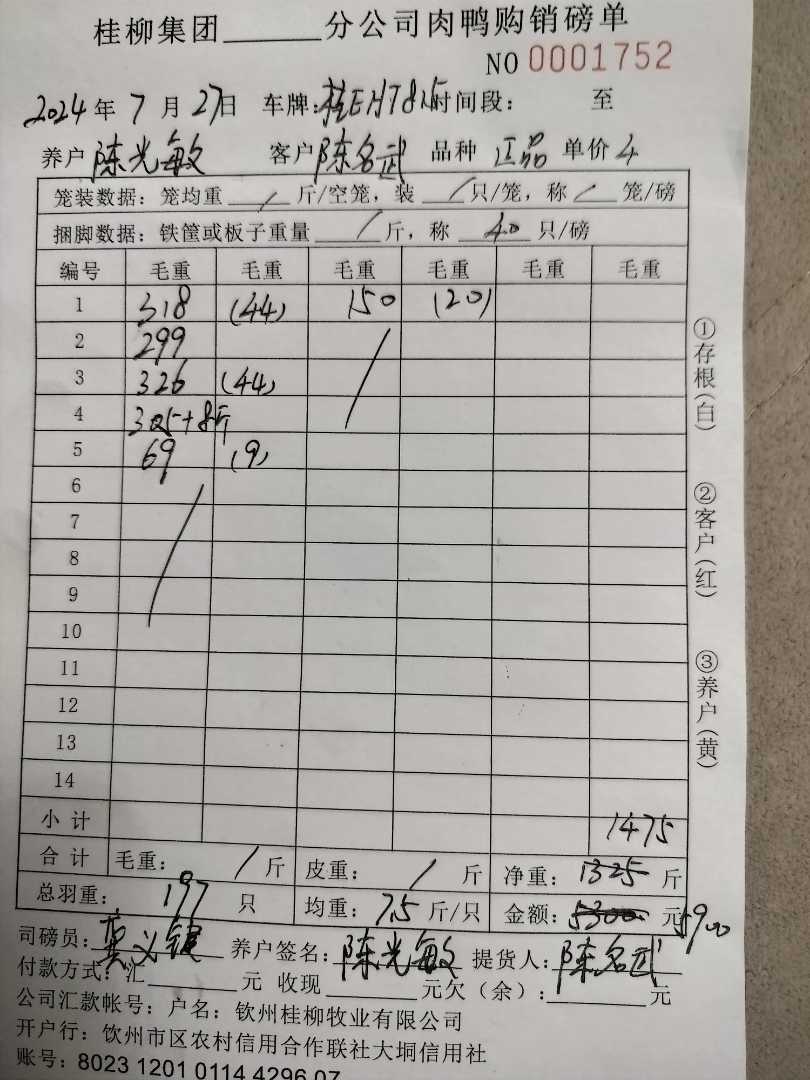 桂柳集团______分公司肉鸭购销磅单
NO 0001752
2024年 7月 27日 车牌: 时间段: 至
养户 陈光敏 客户 陈名武 品种 正品 单价 4
笼装数据: 笼均重 / 斤/空笼, 装 / 只/笼, 称 / 笼/磅
捆脚数据: 铁筐或板子重量 / 斤, 称 40 只/磅
编号 毛重 毛重 毛重 毛重 毛重 毛重
1 318 (44) 150 (20)
2 299
3 326 (44)
4 +8斤
5 69 (9)
6
7
8
9
10
11
12
13
14
小计 1475
合计 毛重: / 斤 皮重: / 斤 净重: 1325 斤
总羽重: 197 只 均重: 7.5 斤/只 金额: 5300 元 5900
司磅员: 养户签名: 陈光敏 提货人: 陈名武
付款方式: 汇______元 收现______元欠(余):______元
公司汇款帐号: 户名: 钦州桂柳牧业有限公司
开户行: 钦州市区农村信用合作联社大垌信用社
账号: 8023 1201 0114 4296 07
①存根(白)
②客户(红)
③养户(黄)